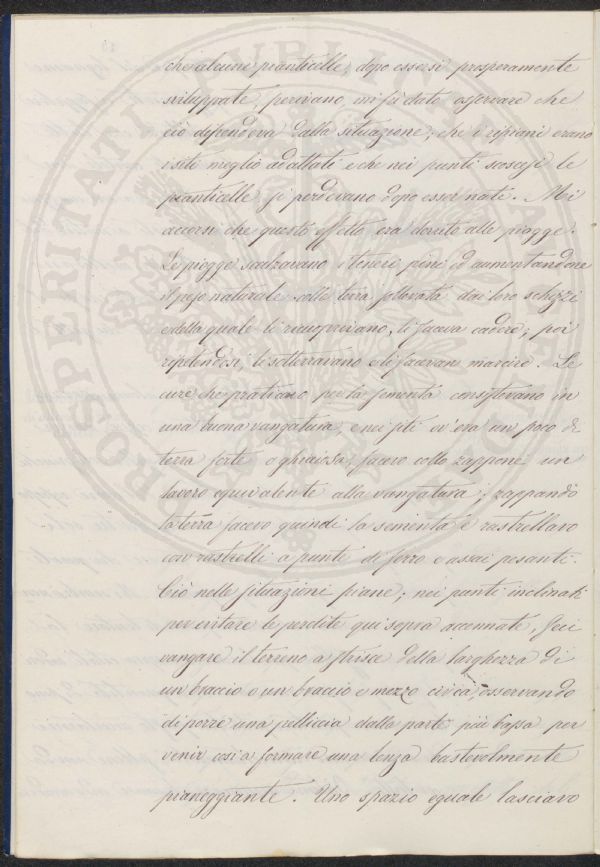 che alcune pianticelle, dopo essersi prosperamente
sviluppate, perivano, mi fù dato osservare che
ciò dipendeva dalla situazione; che i ripiani erano
i siti meglio adattati e che nei punti scoscesi le
pianticelle si perdevano dopo esser nate. Mi
accorsi che questo effetto era dovuto alle piogge.
Le piogge scalzavano i teneri pini ed aumentandone
il peso naturale colla terra sollevata dai loro schizzi
e della quale li ricuoprivano, li faceva cadere; poi
ripetendosi, le sotterravano e li facevan marcire. Le
cure che praticavo per la sementa consistevano in
una buona vangatura, e nei siti ov'era un poco di
terra forte o ghiaiosa, facevo collo zappone un
lavoro equivalente alla vangatura; zappando
la terra facevo quindi la sementa e rastrellavo
con rastrelli a punte di ferro e assai pesanti.
Ciò nelle situazioni piane; nei punti inclinati
per evitare le perdite qui sopra accennate, feci
vangare il terreno a striscie della larghezza di
un braccio o un braccio e mezzo circa, osservando
di porre una pelliccia dalla parte più bassa per
venir così a formare una lenza bastevolmente
pianeggiante. Uno spazio eguale lasciavo
PROSPERITATI